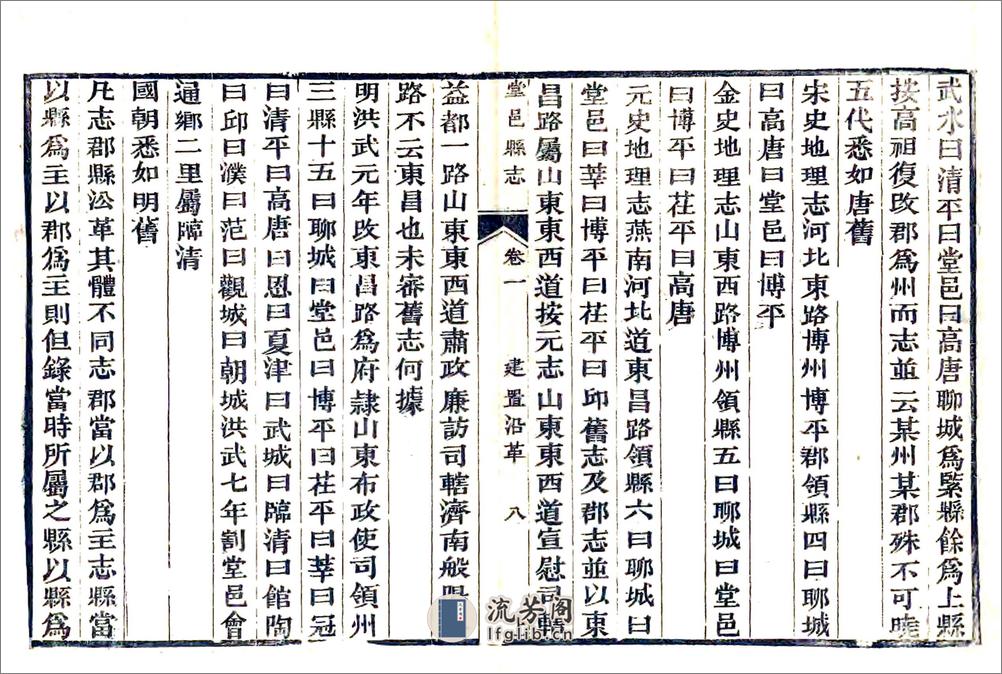 武水曰清平曰堂邑曰高唐聊城爲緊縣餘爲上縣
按高祖復改郡爲州而志並云某州某郡殊不可曉
五代悉如唐舊
宋史地理志河北東路博州博平郡領縣四曰聊城
曰高唐曰堂邑曰博平
金史地理志山東西路博州領縣五曰聊城曰堂邑
曰博平曰茌平曰高唐
元史地理志燕南河北道東昌路領縣六曰聊城曰
堂邑曰莘曰博平曰茌平曰邱舊志及郡志並以東
昌路屬山東東西道按元志山東東西道宣慰司轄
堂邑縣志
卷一
建置沿革
八
益都一路山東東西道肅政廉訪司轄濟南般陽
路不云東昌也未審舊志何據
明洪武元年改東昌路爲府隸山東布政使司領州
三縣十五曰聊城曰堂邑曰博平曰茌平曰莘曰冠
曰清平曰高唐曰恩曰夏津曰武城曰臨清曰館陶
曰邱曰濮曰范曰觀城曰朝城洪武七年割堂邑會
通鄉二里屬臨清
國朝悉如明舊
凡志郡縣沿革其體不同志郡當以郡爲主志縣當
以縣爲主以郡爲主則但錄當時所屬之縣以縣爲
流芳阁
lfglib.cn